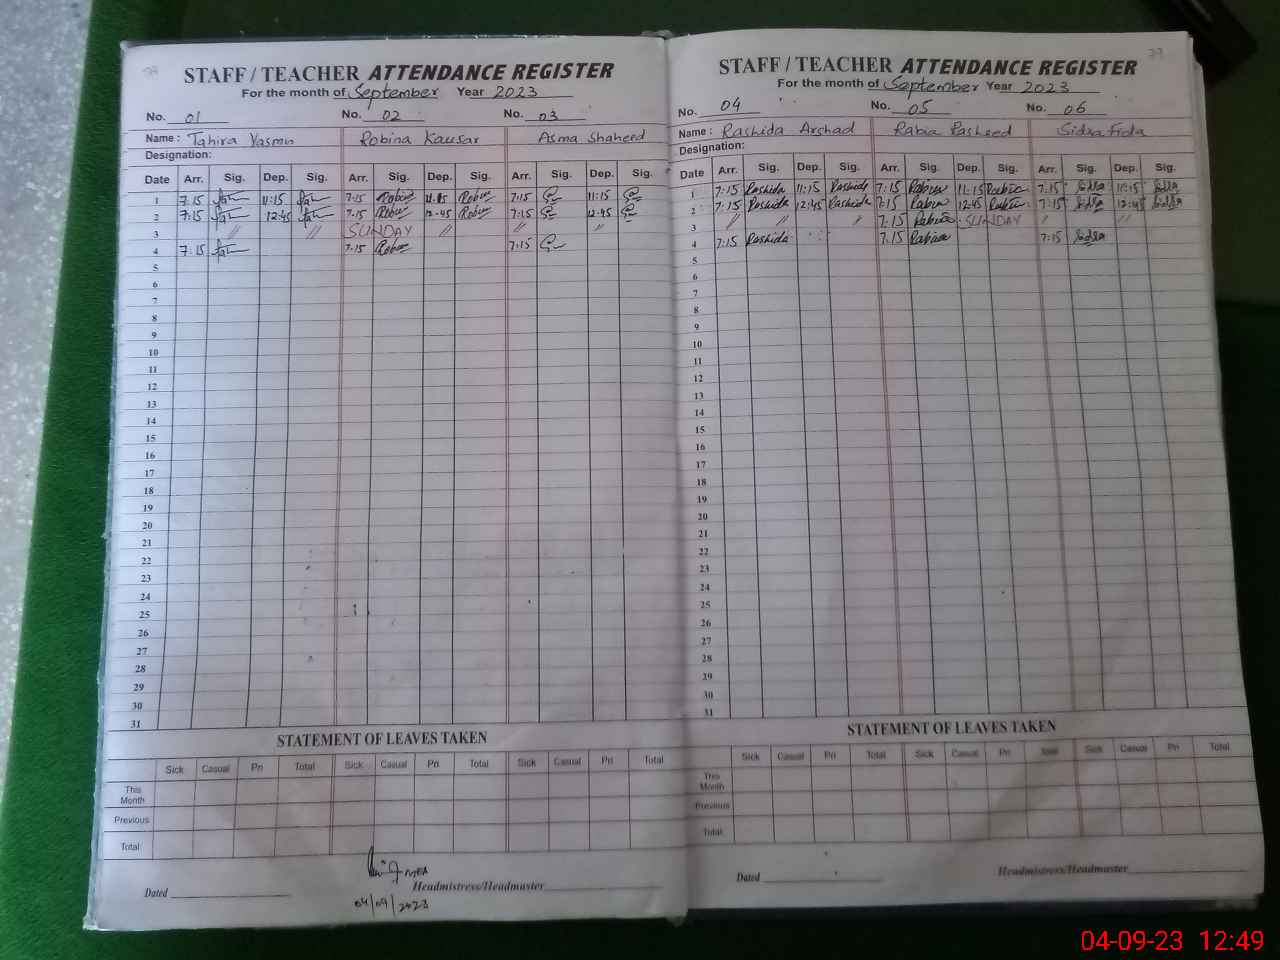 STAFF / TEACHER ATTENDANCE REGISTER
For the month of September Year 2023
No. 01 No. 02 No. 03
Name: Tahira Yasmin Robina Kausar Asma Shaheed
Designation:
Date Arr. Sig. Dep. Sig. Arr. Sig. Dep. Sig. Arr. Sig. Dep. Sig.
1 7:15 11:15 7:15 Robina 11:15 Robina 7:15 11:15
2 7:15 12:45 7:15 Robina 12:45 Robina 7:15 12:45
3 // // SUNDAY // // //
4 7:15 7:15 Robina 7:15
5
6
7
8
9
10
11
12
13
14
15
16
17
18
19
20
21
22
23
24
25
26
27
28
29
30
31
STATEMENT OF LEAVES TAKEN
Sick Casual Pri Total Sick Casual Pri Total Sick Casual Pri Total
This Month
Previous
Total
MEA
Dated Headmistress/Headmaster
04/09/2023
79
STAFF / TEACHER ATTENDANCE REGISTER
For the month of September Year 2023
No. 04 No. 05 No. 06
Name: Rashida Arshad Rabia Rasheed Sidra Fida
Designation:
Date Arr. Sig. Dep. Sig. Arr. Sig. Dep. Sig. Arr. Sig. Dep. Sig.
1 7:15 Rashida 11:15 Rashida 7:15 Rabia 11:15 Rabia 7:15 Sidra 11:15 Sidra
2 7:15 Rashida 12:45 Rashida 7:15 Rabia 12:45 Rabia 7:15 Sidra 12:45 Sidra
3 // // // 7:15 Rabia SUNDAY // // //
4 7:15 Rashida 7:15 Rabia 7:15 Sidra
5
6
7
8
9
10
11
12
13
14
15
16
17
18
19
20
21
22
23
24
25
26
27
28
29
30
31
STATEMENT OF LEAVES TAKEN
Sick Casual Pri Total Sick Casual Pri Total Sick Casual Pri Total
This Month
Previous
Total
Dated Headmistress/Headmaster
04-09-23 12:49